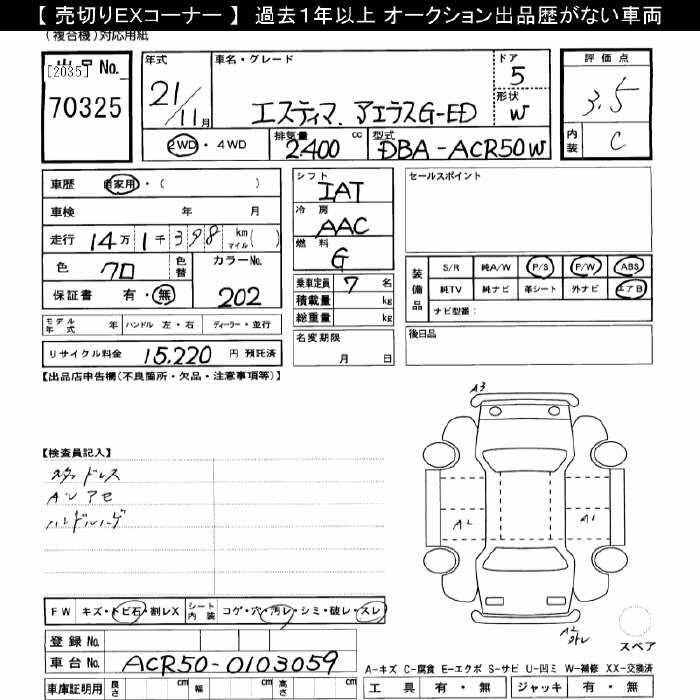 【 売切りEXコーナー 】 過去1年以上 オークション出品歴がない車両
(複合機)対応用紙
出品 No.
[2035]
70325
年式
21/11月
車名・グレード
エスティマ. アエラスG-ED
ドア
5
形状
W
評価点
3.5
内装
C
2WD・4WD
排気量
2.400 cc
型式
DBA-ACR50W
車歴 自家用・( )
車検 年 月
走行 14万1千398 km マイル( )
色 クロ
色替
カラーNo.
202
保証書 有・無
モデル年式 年 ハンドル 左・右 ディーラー・並行
リサイクル料金 15,220 円 預託済
シフト
IAT
冷房
AAC
燃料
G
乗車定員 7 名
積載量 kg
総重量 kg
名変期限
月 日
セールスポイント
装備品
S/R 純A/W P/S P/W ABS
純TV 純ナビ 革シート 外ナビ エアB
ナビ型番:
後日品
【出品店申告欄(不良箇所・欠品・注意事項等)】
【検査員記入】
スタッドレス
ハンドルハゲ
A3
A2
A1
スペア
FW キズ・トビ石・割レX
シート内装 コゲ・穴・汚レ・シミ・破レ・スレ
登録 No.
車台 No. ACR50-0103059
車庫証明用 長さ cm 幅 cm 高さ cm
A-キズ C-腐食 E-エクボ S-サビ U-凹ミ W-補修 XX-交換済
工具 有・無 ジャッキ 有・無